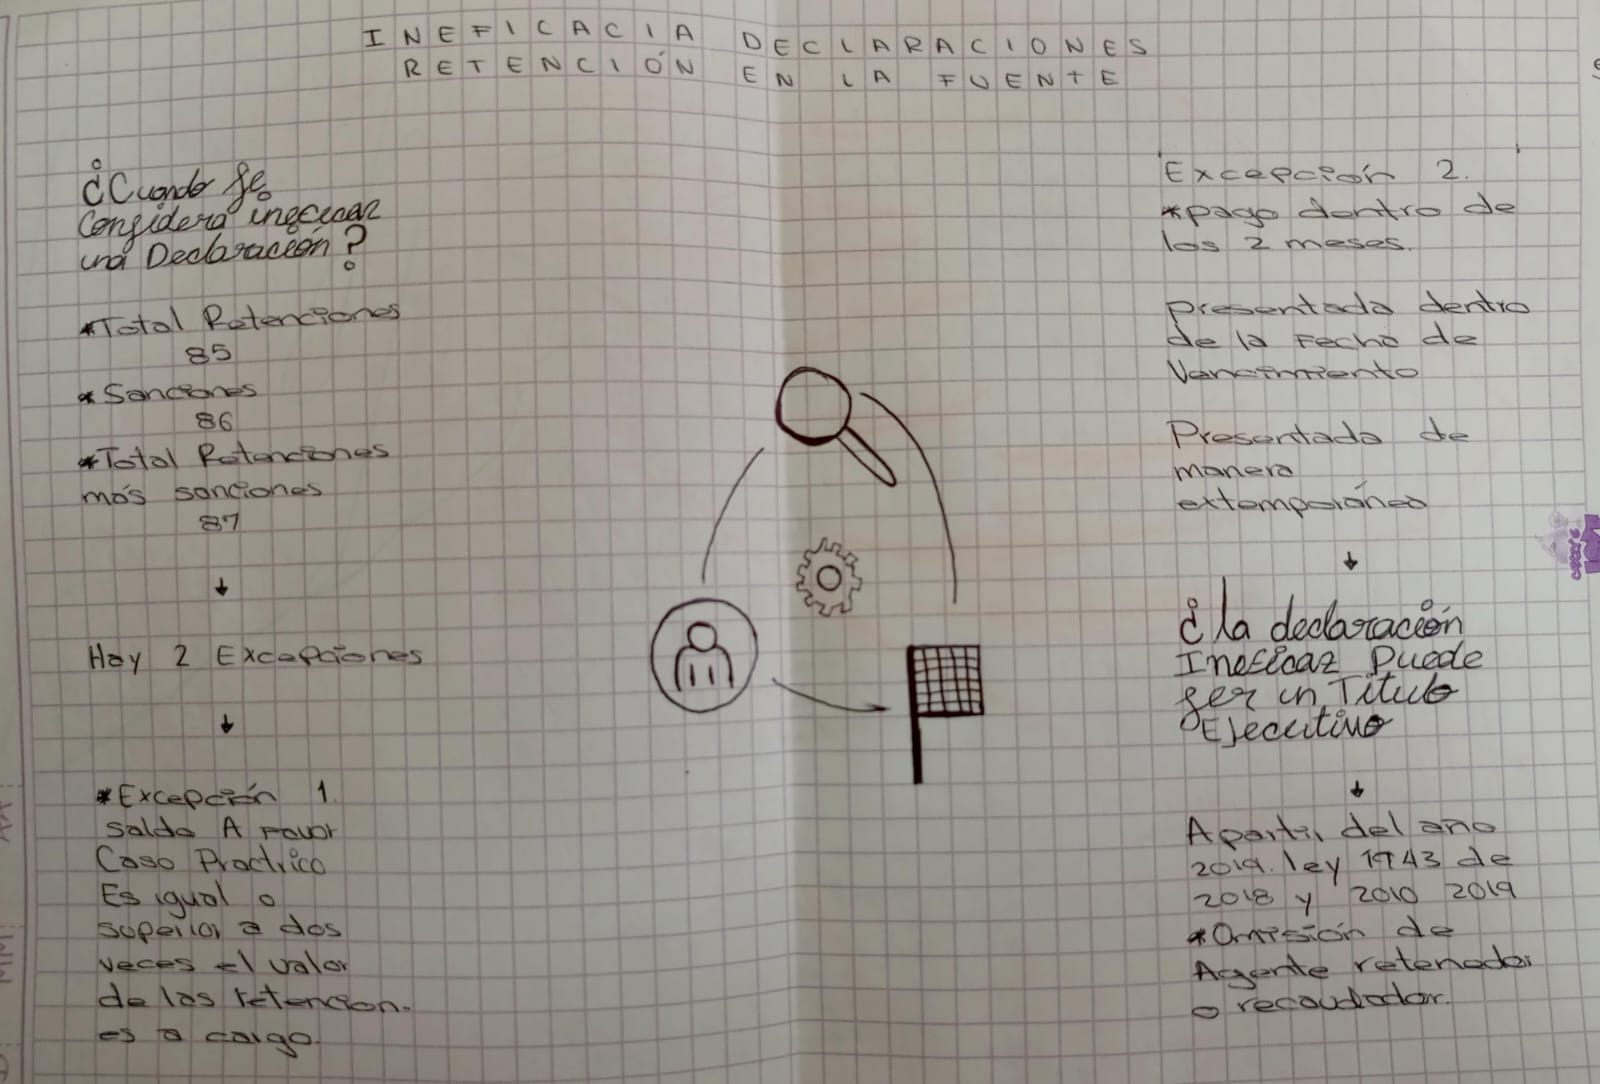 INEFICACIA DECLARACIONES
RETENCIÓN EN LA FUENTE
¿Cuando se
Considera ineficaz
una Declaración?
*Total Retenciones
85
*Sanciones
86
*Total Retenciones
más sanciones
87
Hay 2 Excepciones
*Excepción 1.
saldo A Favor
Caso Practrico
Es igual o
superior a dos
veces el valor
de las retencion.
es a cargo.
Excepción 2.
*pago dentro de
los 2 meses.
presentada dentro
de la Fecha de
Vencimiento
Presentada de
manera
extemporánea
¿la declaración
Ineficaz Puede
ser un Titulo
Ejecutivo
A partir del año
2019. ley 1943 de
2018 y 2010 2019
*Omisión de
Agente retenedor
o recaudador.